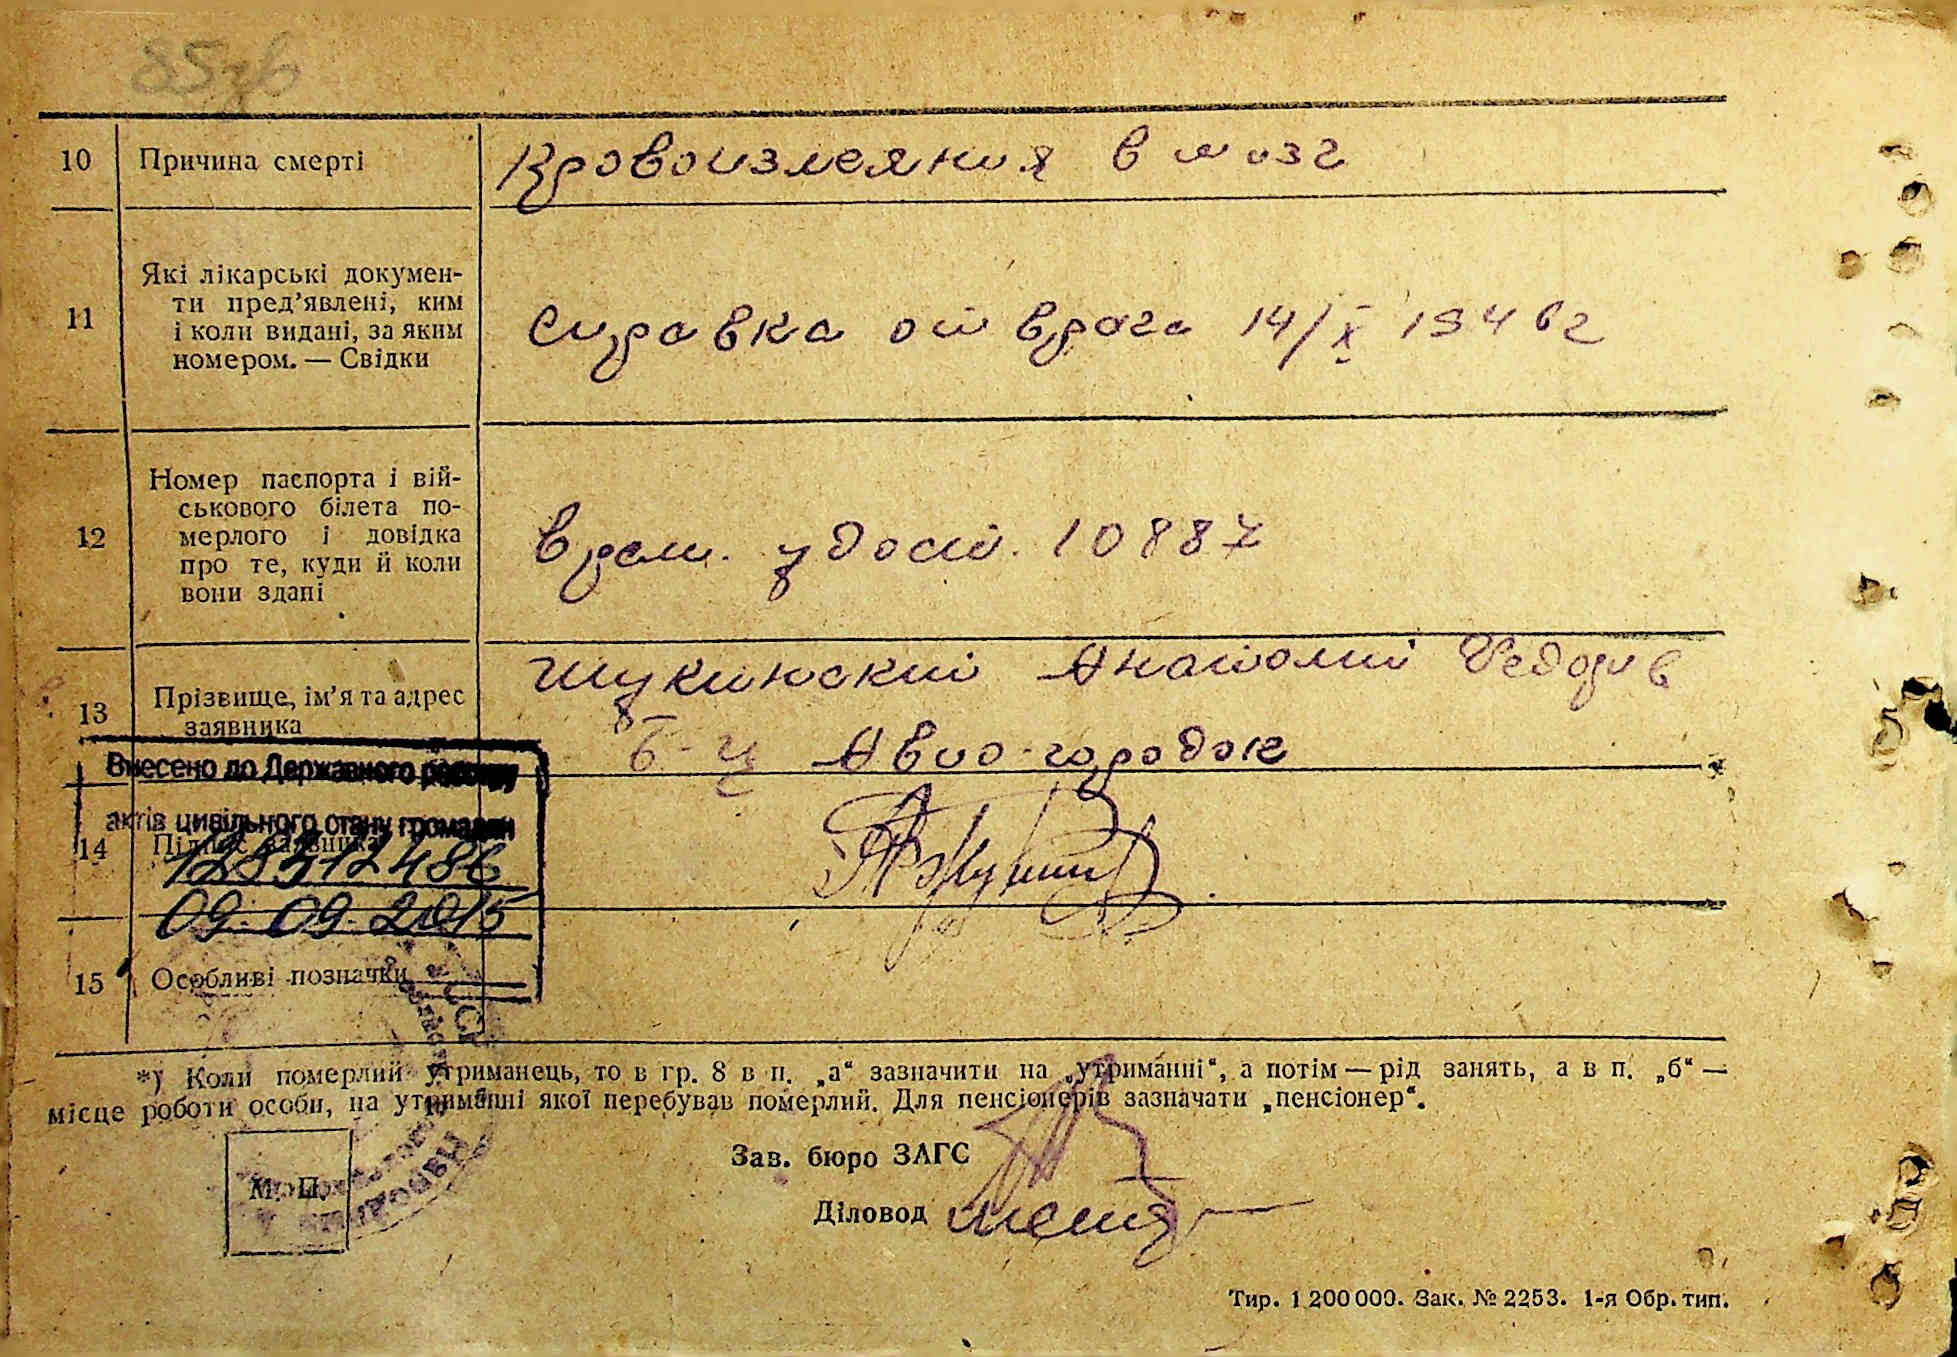 10 Причина смерті Кровоизлеяния в мозг
11 Які лікарські докумен-
ти пред'явлені, ким
і коли видані, за яким
номером. — Свідки
Справка от врага 14/X 1946 г
12 Номер паспорта і вій-
ськового білета по-
мерлого і довідка
про те, куди й коли
вони здані
врем. удост. 10887
13 Прізвище, ім'я та адрес
заявника
Щукинский Анатолий Федоров
Б-Ц Авио-городок
Внесено до Державного реєстру
актів цивільного стану громадян
14 Підпис заявника
09.09.2015
15 Особливі позначки
*) Коли померлий утриманець, то в гр. 8 в п. „а“ зазначити на „утриманні“, а потім — рід занять, а в п. „б“ —
місце роботи особи, на утриманні якої перебував померлий. Для пенсіонерів зазначати „пенсіонер“.
Зав. бюро ЗАГС
М. П.
Діловод
Тир. 1 200 000. Зак. № 2253. 1-я Обр. тип.